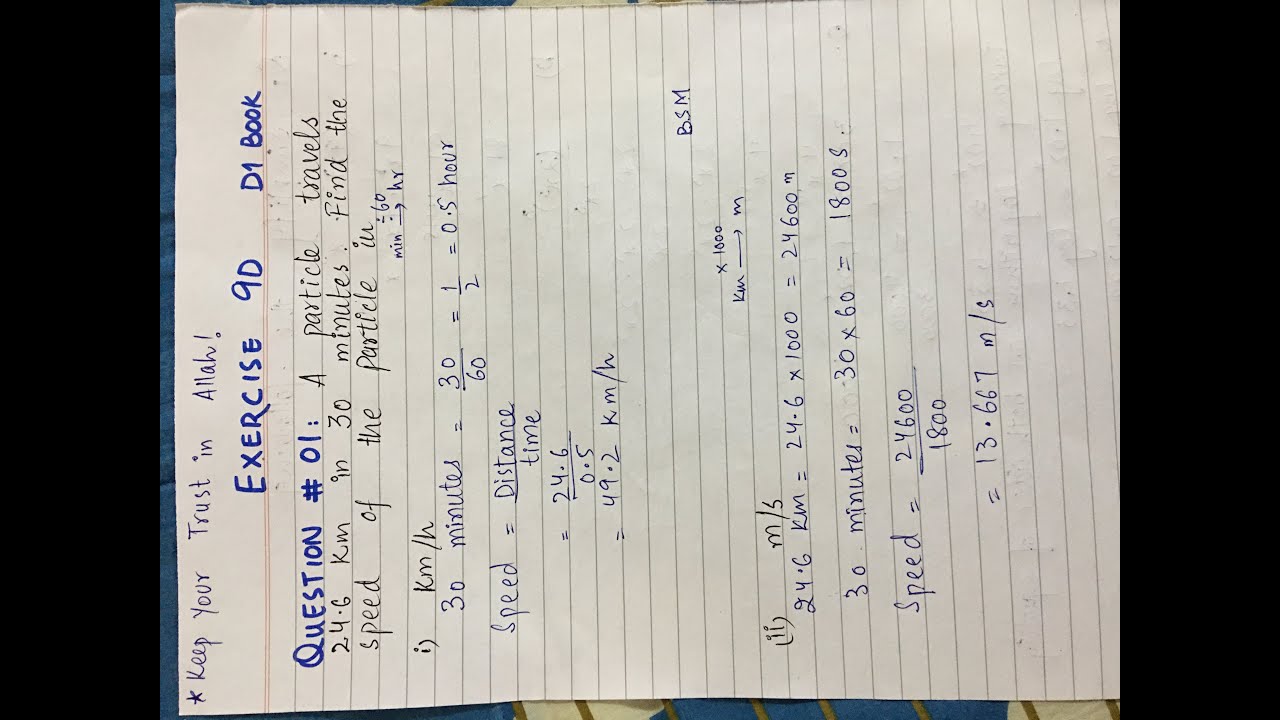 * Keep Your Trust in Allah!
EXERCISE 9D D1 BOOK
QUESTION # 01: A particle travels
24.6 km in 30 minutes. Find the
speed of the particle in
min ÷60→ hr
i) km/h
30 minutes = 30/60 = 1/2 = 0.5 hour
Speed = Distance/time
= 24.6/0.5
= 49.2 km/h
BSM
× 1000
km → m
(ii) m/s
24.6 km = 24.6 × 1000 = 24600 m
30 minutes = 30 × 60 = 1800 s.
Speed = 24600/1800
= 13.667 m/s